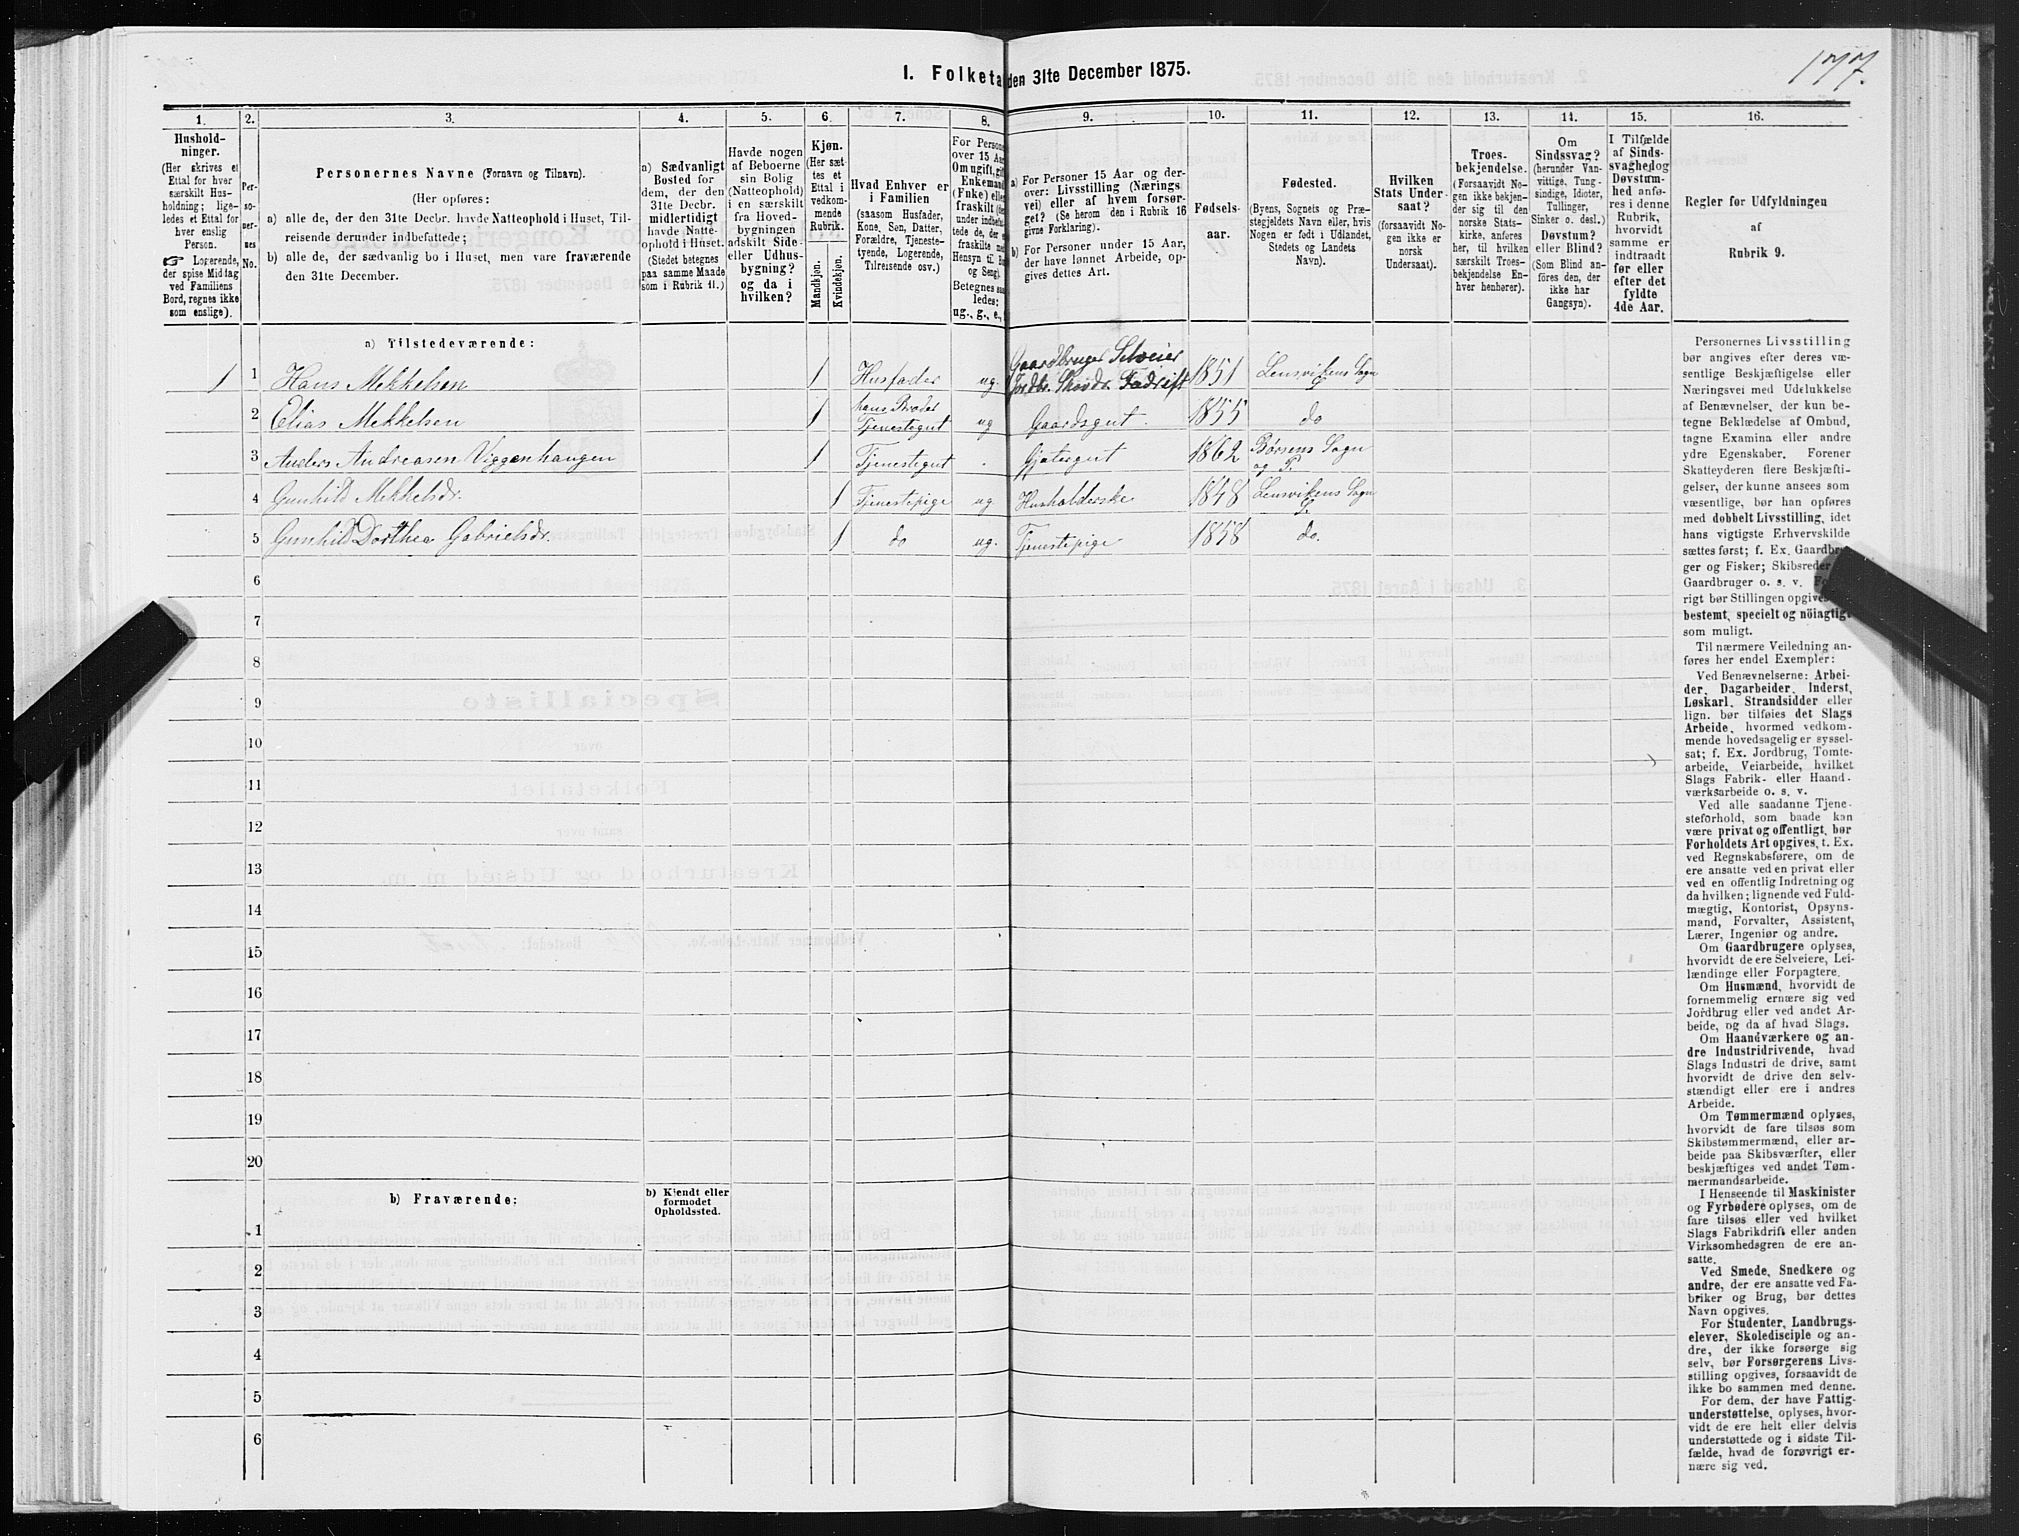 177.
I. Folketa den 31te December 1875.
1. 2. 3. 4. 5. 6. 7. 8. 9. 10. 11. 12. 13. 14. 15. 16.
Hushold-
ninger.
(Her skrives et
Ettal for hver
særskilt Hus-
holdning; lige-
ledes et Ettal for
hver enslig
Person.
☞ Logerende,
der spise Middag
ved Familiens
Bord, regnes ikke
som enslige).
Per-
so-
ner-
nes
No.
Personernes Navne (Fornavn og Tilnavn).
(Her opføres:
a) alle de, der den 31te Decbr. havde Natteophold i Huset, Til-
reisende derunder indbefattede;
b) alle de, der sædvanlig bo i Huset, men vare fraværende
den 31te December.
a) Sædvanligt
Bosted for
dem, der den
31te Decbr.
midlertidigt
havde Natte-
ophold i Huset.
(Stedet betegnes
paa samme Maade
som i Rubrik 11.)
Havde nogen
af Beboerne
sin Bolig
(Natteophold)
i en særskilt
fra Hoved-
bygningen
adskilt Side-
eller Udhus-
bygning?
og da i
hvilken?
Kjøn.
(Her sæt-
tes et
Ettal i
vedkom-
mende
Rubrik.
Mandkjøn.
Kvindekjøn.
Hvad Enhver er
i Familien
(saasom Husfader,
Kone, Søn, Datter,
Forældre, Tjeneste-
tyende, Logerende,
Tilreisende osv.)
For Persone
over 15 Aa
Om ugift, gif
Enkemand
(Enke) elle
fraskilt
under indbefat-
tede de, der e
fraskilte med
Hensyn til Bo
og Seng).
Betegnes saa
ledes;
ug., g., e.,
a) For Personer 15 Aar og der-
over: Livsstilling (Nærings
vei) eller af hvem forsør-
get? (Se herom den i Rubrik 16
givne Forklaring).
b) For Personer under 15 Aar,
der have lønnet Arbeide, op-
gives dettes Art.
Fødsels-
aar.
Fødested.
(Byens, Sognets og Præ-
stegjeldets Navn eller, hvis
Nogen er født i Udlandet,
Stedets og Landets
Navn).
Hvilken
Stats Under-
saat?
(forsaavidt No-
gen ikke er
norsk
Undersaat).
Troes-
bekjendelse.
(Forsaavidt No-
gen ikke bekjen-
der sig til den
norske Stats-
kirke, anføres
her, til hvilken
særskilt Troes-
bekjendelse En-
hver henhører).
Om
Sindssvag?
(herunder Van-
vittige, Tung-
sindige, Idioter,
Tullinger,
Sinker o. desl.)
Døvstum?
eller Blind?
(Som Blind an-
føres den, der
ikke har
Gangsyn).
I Tilfælde
af Sinds-
svaghed og
Døvstum-
hed anfø-
res i denne
Rubrik,
hvorvidt
samme er
indtraadt
før eller
efter det
fyldte
4de Aar.
Regler for Udfyldningen
af
Rubrik 9.
a) Tilstedeværende:
Gaardbruger Selveier
1 1 Hans Mekkelsen 1 Husfader ug. Jordbr. Skovdr. Fædrift 1851 Lensvikens Sogn
2 Elias Mekkelsen 1 hans Broder Tjenestegut ug Gaardsgut. 1855 do
3 Anders Andreasen Viggenhaugen 1 Tjenestegut . Gjætergut 1862 Børsens Sogn og P.
4 Gunhild Mekkelsdr. 1 Tjenestepige ug Husholderske 1848 Lensvikens Sogn
5 Gunhild Dorthea Gabrielsdr. 1 do ug. Tjenestepige 1858 do.
6
7
8
9
10
11
12
13
14
15
16
17
18
19
20
b) Fraværende:
b) Kjendt eller
formodet
Opholdssted.
1
2
3
4
5
6
Personernes Livsstilling
bør angives efter deres væ-
sentlige Beskjæftigelse eller
Næringsvei med Udelukkelse
af Benævnelser, der kun be-
tegne Beklædelse af Ombud,
tagne Examina eller andre
ydre Egenskaber. Forener
Skatteyderen flere Beskjæfti-
gelser, der kunne ansees som
væsentlige, bør han opføres
med dobbelt Livsstilling, idet
hans vigtigste Erhvervskilde
sættes først; f. Ex. Gaardbru
ger og Fisker; Skibsreder
Gaardbruger o. s. v. Fo
rigt bør Stillingen opgives
bestemt, specielt og nöiagtigt
som muligt.
Til nærmere Veiledning an-
føres her endel Exempler:
Ved Benævnelserne: Arbei-
der, Dagarbeider, Inderst,
Løskarl, Strandsidder eller
lign. bør tilføies det Slags
Arbeide, hvormed vedkom-
mende hovedsagelig er syssel-
sat; f. Ex. Jordbrug, Tomte-
arbeide, Veiarbeide, hvilket
Slags Fabrik- eller Haand-
værksarbeide o. s. v.
Ved alle saadanne Tjene-
steforhold, som baade kan
være privat og offentligt, bør
Forholdets Art opgives, t. Ex.
ved Regnskabsførere, om de
ere ansatte ved en privat eller
ved en offentlig Indretning og
da hvilken; lignende ved Fuld-
mægtig, Kontorist, Opsyns-
mand, Forvalter, Assistent,
Lærer, Ingeniør og andre.
Om Gaardbrugere oplyses,
hvorvidt de ere Selveiere, Lei-
lændinge eller Forpagtere.
Om Husmænd, hvorvidt de
fornemmelig ernære sig ved
Jordbrug eller ved andet Ar-
beide, og da af hvad Slags.
Om Haandværkere og an-
dre Industridrivende, hvad
Slags Industri de drive, samt
hvorvidt de drive den selv-
stændigt eller ere i andres
Arbeide.
Om Tømmermænd oplyses,
hvorvidt de fare tilsøs som
Skibstømmermænd, eller ar-
beide paa Skibsværfter, eller
beskjæftiges ved andet Tøm-
mermandsarbeide.
I Henseende til Maskinister
og Fyrbødere oplyses, om de
fare tilsøs eller ved hvilket
Slags Fabrikdrift eller anden
Virksomhedsgren de ere an-
satte.
Ved Smede, Snedkere og
andre, der ere ansatte ved Fa-
briker og Brug, bør dettes
Navn opgives.
For Studenter, Landbrugs-
elever, Skoledisciple og an-
dre, der ikke forsørge sig
selv, bør Forsørgerens Livs-
stilling opgives, forsaavidt de
ikke bo sammen med denne.
For dem, der have Fattig-
understøttelse, oplyses, hvor-
vidt de ere helt eller delvis
understøttede og i sidste Til-
fælde, hvad de forøvrigt er-
nære sig ved.